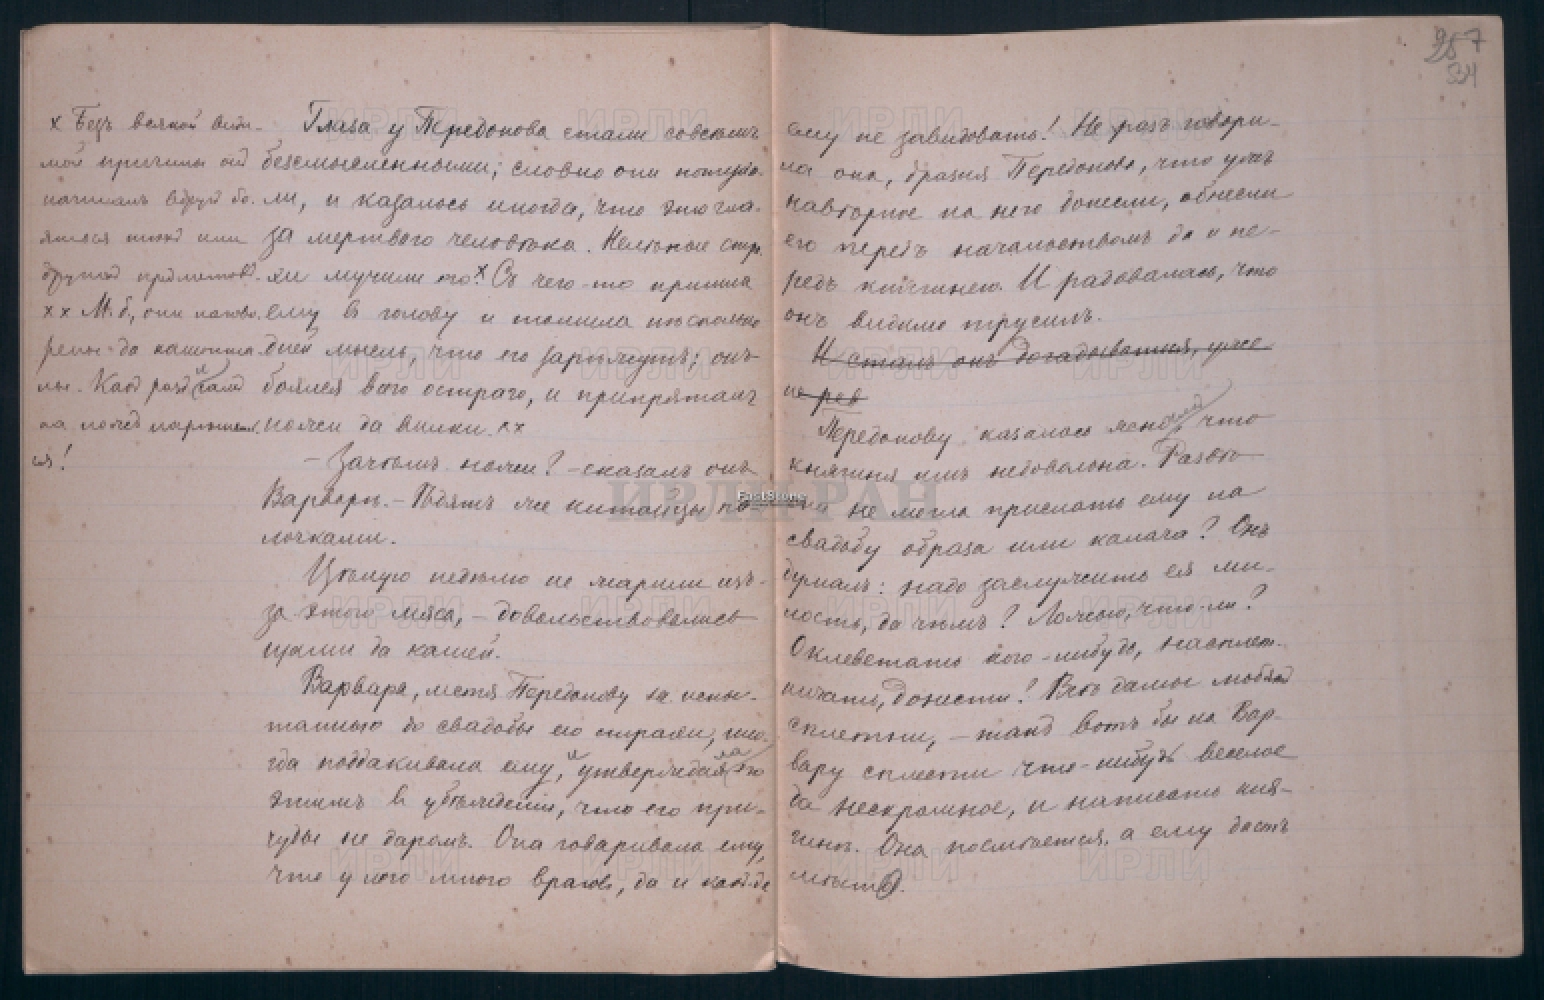 257
34
х Безъ всякой види-
мой причины онъ
начиналъ вдругъ бо-
яться техъ или
другихъ предметовъ.
хх М. б., они наговоре-
ны да нашептаны.
Какъ разъ и самъ
на ножъ напорешь-
ся!
Глаза у Передонова стали совсѣмъ
безсмысленными; словно они потухо-
ли, и казалось иногда, что это гла-
за мертваго человѣка. Нелѣпые стра-
хи мучили его.х Съ чего-то пришла
ему в голову и томила нѣсколько
дней мысль, что его зарѣжутъ; онъ
боялся всего остраго, и припряталъ
ножи да вилки. хх
– Зачѣмъ ножи? – сказалъ онъ
Варварѣ. – Ѣдятъ же китайцы па-
лочками.
Цѣлую недѣлю не жарили изъ-
за этого мяса, – довольствовались
щами да кашей.
Варвара, мстя Передонову за испы-
танные до свадьбы ею страхи, ино-
гда поддакивала ему, и утверждала его
этимъ в убѣжденіи, что его при-
чуды не даромъ. Она говаривала ему,
что у него много враговъ, да и какъ-де
ему не завидовать! Не разъ говори-
ла она, дразня Передонова, что ужъ
навѣрное на него донесли, обнесли
его передъ начальствомъ да и пе-
редъ княгинею. И радовалась, что
онъ видимо трусилъ.
И сталъ онъ догадываться, уже
не
Передонову казалось яснымъ, что
княгиня имъ недовольна. Развѣ
она не могла прислать ему на
свадьбу образа или калача? Онъ
думалъ: надо заслужить ея ми-
лость, да чѣмъ? Ложью, что-ли?
Оклеветать кого-нибудь, насплет-
ничать, донести! Всѣ дамы любятъ
сплетни, – такъ вотъ бы на Вар-
вару сплести что-нибудь веселое
да нескромное, и написать кня-
гинѣ. Она посмѣется, а ему дастъ
мѣсто.
ИРЛИ РАН
FastStone